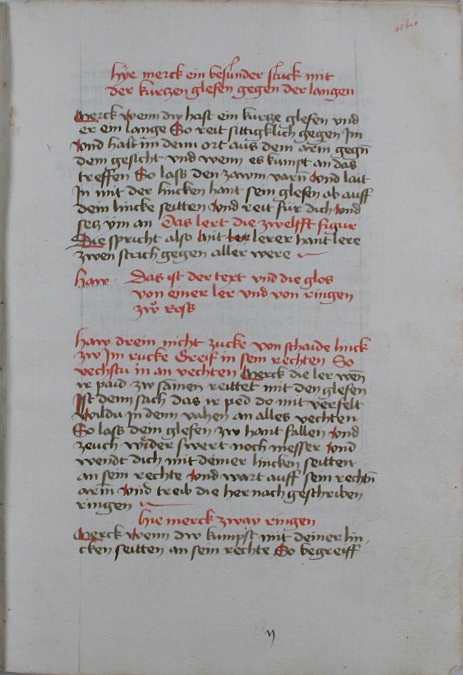 hÿe merck ein besunder stuck mit
der kurczen glefen gegen der langen
Merck wenn dw hast ein kurtze glefen vnd
er ein lange So reit sittigklich gegen Im
Vnd halt in denn ort aus dem arm gegn
dem gesicht vnd wenn es kumpt an das
treffen So lass den zawm varn Vnd lait
In mit der lincken hant sein glefen ab auff
dem lincke seitten Vnd reit für dich Vnd
secz Im an Das lert die zwelfft figur
Die spricht also Mit lerer hant lere
zwen strich gegen aller were
haw Das ist der text vnd die glos
von einer ler vnd von ringen
zw ross
haw drein nicht zucke von schaide linck
zw Im rucke Greif in sein rechten So
vechstu in an vechten Merck die ler wen
ir paid zw samen reittet mit den glefen
Ist denn sach das ir ped do mit verfelt
Wildu In denn vahen an alles vechten
So lass dem glefen zw hant fallen Vnd
zeuch weder swert noch messer Vnd
wendt dich mit deiner lincken seitten
an sein rechte Vnd wart auff sein rechtn
arm Vnd treib die hernach geschriben
ringen
hie merck zway ringen
Merck wenn dw kumpst mit deiner lin
cken seitten an sein rechte So begreiff